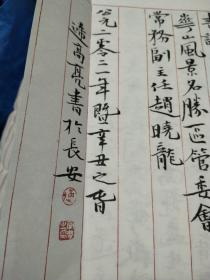 華山風景名勝區管委會
常務副主任趙曉龍
公元二零二一年暨辛丑之
高亮書於長安